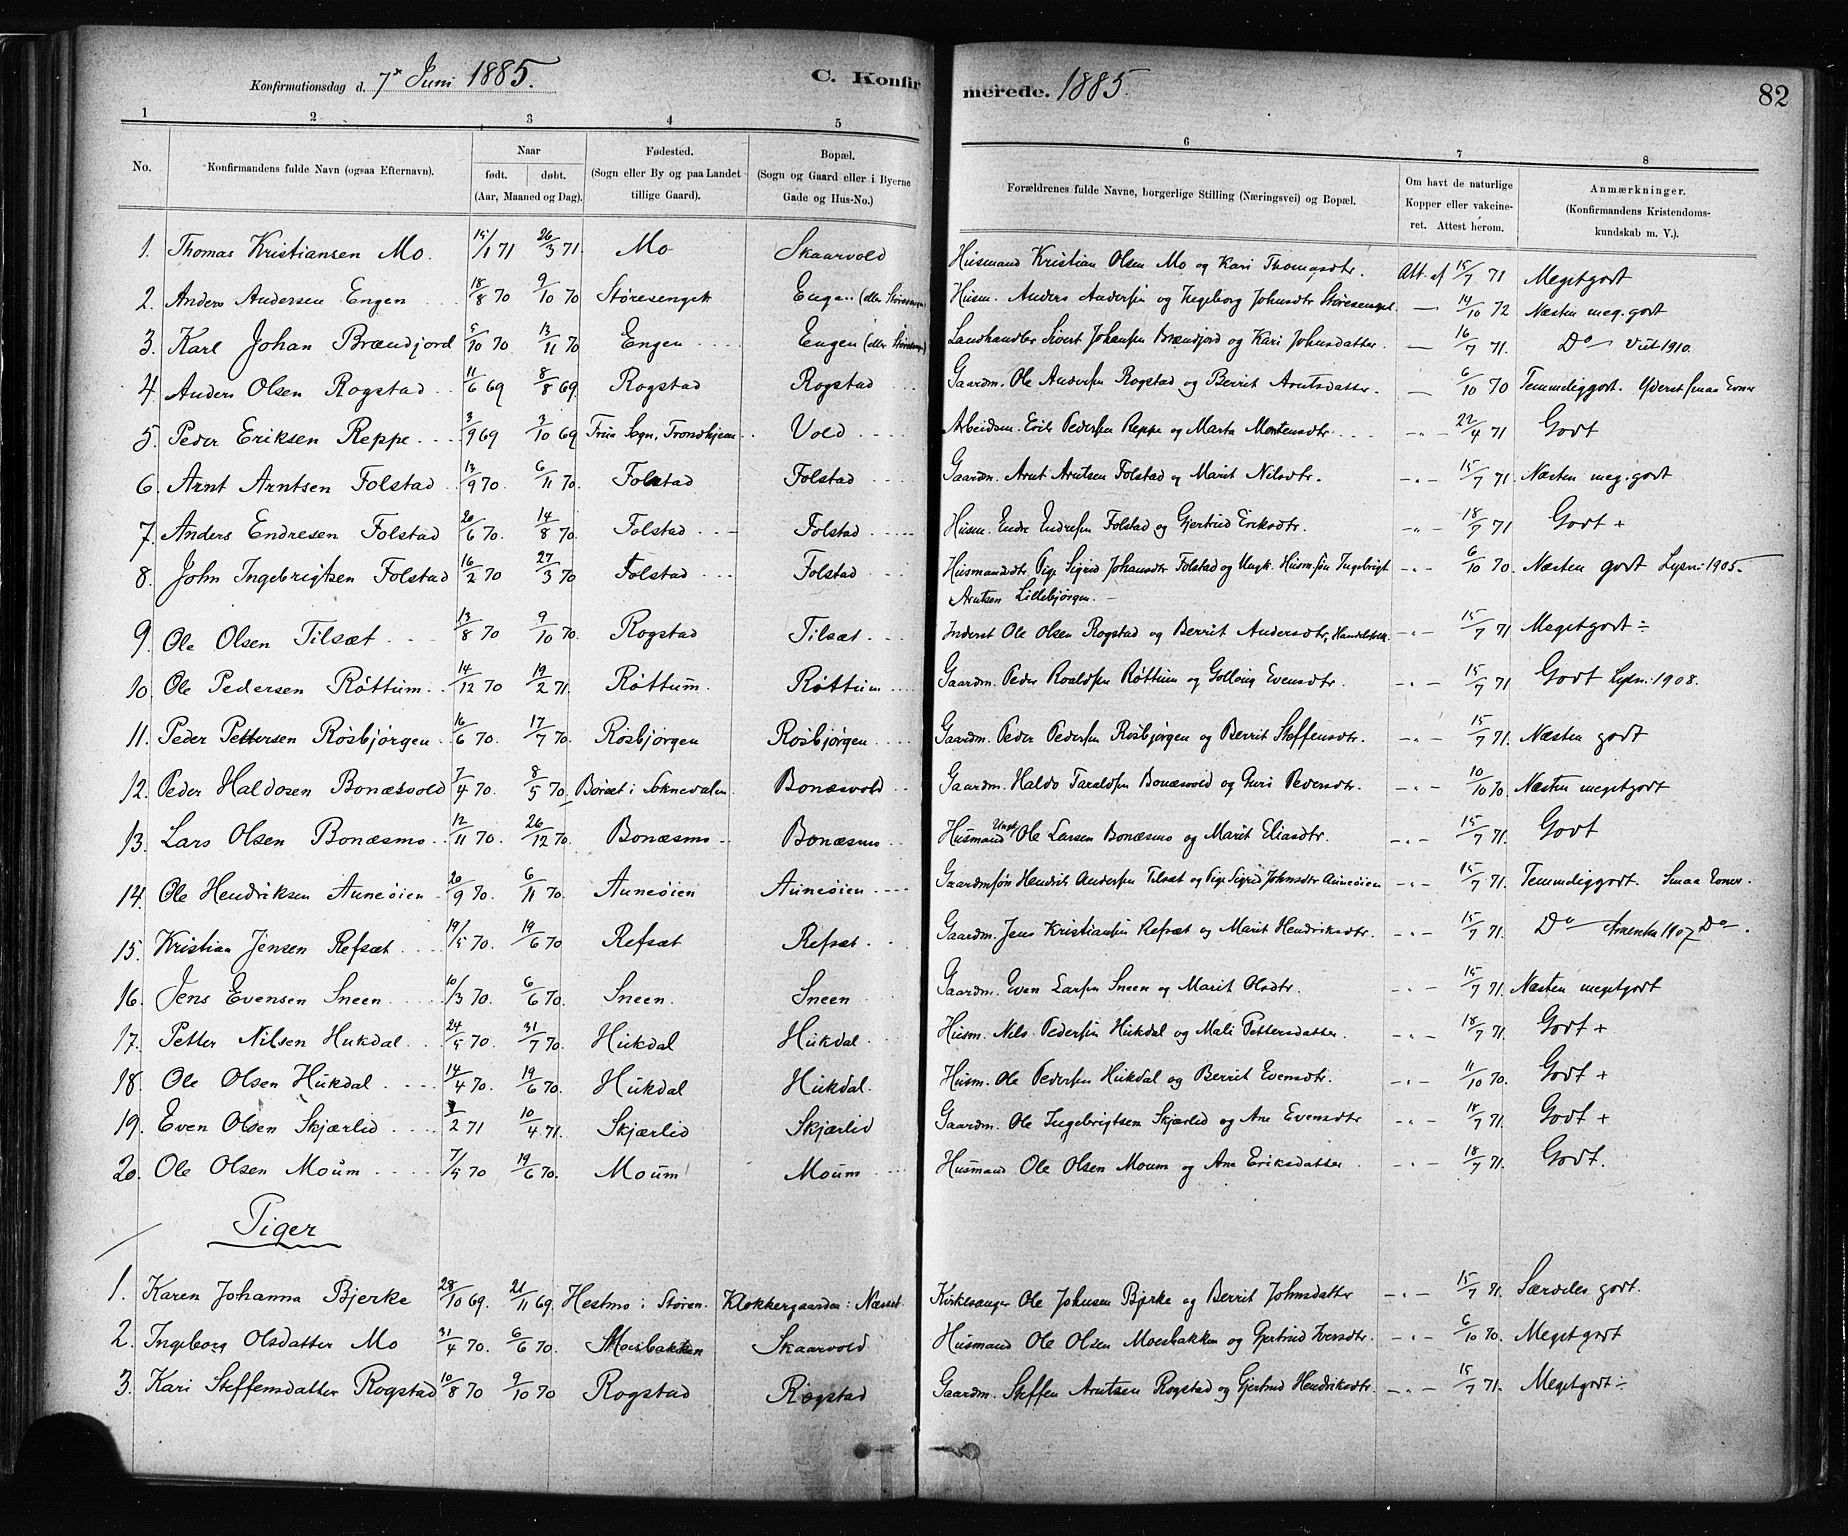 Konfirmationsdag d. 7de Juni 1885. C. Konfirmerede. 1885. 82
1 2 3 4 5 6 7 8
No. Konfirmandens fulde Navn (ogsaa Efternavn). Naar født. døbt. (Aar, Maaned og Dag). Fødested. (Sogn eller By og paa Landet tillige Gaard). Bopæl. (Sogn og Gaard eller i Byerne Gade og Hus-No.) Forældrenes fulde Navne, borgerlige Stilling (Næringsvei) og Bopæl. Om havt de naturlige Kopper eller vakcineret. Attest herom. Anmærkninger. (Konfirmandens Kristendomskundskab m. V.).
1. Thomas Kristiansen Mo. 15/1 71 26/3 71. Mo Skaarvold Husmand Kristian Olsen Mo og Kari Thomasdtr. Att. af 15/7 71 Megetgodt
2. Anders Andersen Engen 18/8 70 9/10 70 Støresenget Engen (eller Støresengen) Husm. Anders Andersen og Ingeborg Johnsdtr Støresenget. — 14/10 72 Næsten meg. godt
3. Karl Johan Brændjord 5/10 70 13/11 70 Engen Engen (eller Støresenget) Landhandler Sivert Johansen Brændjord og Kari Johnsdatter. — 16/7 71. Do — Vut 1910.
4. Anders Olsen Rogstad 11/6 69 8/8 69. Rogstad Rogstad Gaardm. Ole Andersen Rogstad og Berrit Arntsdatter. — 6/10 70 Temmeliggodt. Yderst smaa Evner
5. Peder Eriksen Reppe 3/9 69 3/10 69 Frue Sogn, Trondhjem Vold Arbeidsm. Erik Pedersen Reppe og Marta Mortensdtr. -"- 22/4 71 Godt
6. Arnt Arntsen Folstad 13/9 70. 6/11 70. Folstad Folstad Gaardm. Arnt Arntsen Folstad og Marit Nilsdtr. -"- 15/7 71. Næsten meg. godt
7. Anders Endresen Folstad 20/6 70. 14/8 70. Folstad Folstad Husm. Endre Endresen Folstad og Gjertrud Eriksdtr. -"- 18/7 71 Godt +
8. John Ingebrigtsen Folstad 16/2 70 27/3 70 Folstad Folstad Husmandsdtr Pige Sigrid Johansdtr Folstad og Ungk. Husm.søn Ingebrigt -"- 6/10 70. Næsten godt Lysn: 1905.
Arntsen Lillebjørgen. —
9. Ole Olsen Tilsæt 13/8 70 9/10 70. Rogstad Tilsæt Inderst Ole Olsen Rogstad og Berrit Andersdtr, -"- 15/7 71 Megetgodt ÷
10. Ole Pedersen Røttum 14/12 70 19/2 71. Røttum. Røttum Gaardm. Peder Roaldsen Røttum og Gollaug Evensdtr. -"- 15/7 71 Godt Lysn: 1908.
11. Peder Pettersen Rosbjørgen 16/6 70. 17/7 70. Rosbjørgen Rosbjørgen Gaardm. Peder Pedersen Rosbjørgen og Berrit Steffensdtr. -"- 15/7 71. Næsten godt
12. Peder Haldosen Bonæsvold 7/4 70. 8/5 70. Børset i Soknedalen. Bonæsvold Gaardm. Haldo Taraldsen Bonæsvold og Guri Pedersdtr. -"- 10/10 70. Næsten megetgodt
13. Lars Olsen Bonæsmo 12/11 70. 26/12 70. Bonæsmo Bonæsmo Husmand Ungk. Ole Larsen Bonæsmo og Marit Eliasdtr. -"- 15/7 71. Godt
14. Ole Hendriksen Auneøien 20/9 70. 6/11 70. Auneøien Auneøien Gaardmsøn Hendrik Andersen Tilsæt og Pige Sigrid Johnsdtr Auneøien -"- 15/7 71. Temmeliggodt. Smaa Evner.
15. Kristian Jensen Refsæt 19/5 70. 19/6 70 Refsæt Refsæt. Gaardm. Jens Kristiansen Refsæt og Marit Hendriksdtr. -"- 15/7 71. Do — Amerika 1907 Do —.
16. Jens Evensen Sneen 10/3 70. 6/6 70. Sneen. Sneen Gaardm. Even Larsen Sneen og Marit Olsdtr. -"- 15/7 71. Næsten megetgodt
17. Petter Nilsen Hukdal. 24/5 70. 31/7 70. Hukdal Hukdal. Husm. Nils Pedersen Hukdal og Mali Pettersdatter. -"- 18/7 71. Godt +
18. Ole Olsen Hukdal 14/4 70. 19/6 70. Hukdal Hukdal. Husm. Ole Pedersen Hukdal og Berrit Evensdtr. -"- 11/10 70. Godt +
19. Even Olsen Skjærlid 3/2 71 10/4 71. Skjærlid Skjærlid Gaardm. Ole Ingebrigtsen Skjærlid og Ane Evensdtr -"- 18/7 71. Godt +
20. Ole Olsen Moum 7/5 70 19/6 70. Moum Moum Husmand Ole Olsen Moum og Ane Eriksdatter -"- 18/7 71. Godt.
Piger
1. Karen Johanna Bjerke 28/10 69. 21/11 69. Hestmo i Støren. Klokkergaarden: Næsset Kirkesanger Ole Johnsen Bjerke og Berrit Johnsdatter -"- 15/7 71. Særdeles godt.
2. Ingeborg Olsdatter Mo 31/4 70. 6/6 70. Moesbakken Skaarvold Husmand Ole Olsen Moesbakken og Gjertrud Iversdtr. -"- 6/10 70. Megetgodt
3. Kari Steffensdatter Rogstad 10/8 70 9/10 70 Rogstad Rogstad Gaardm. Steffen Arntsen Rogstad og Gjertrud Hendriksdtr. -"- 15/7 71. Megetgodt ÷